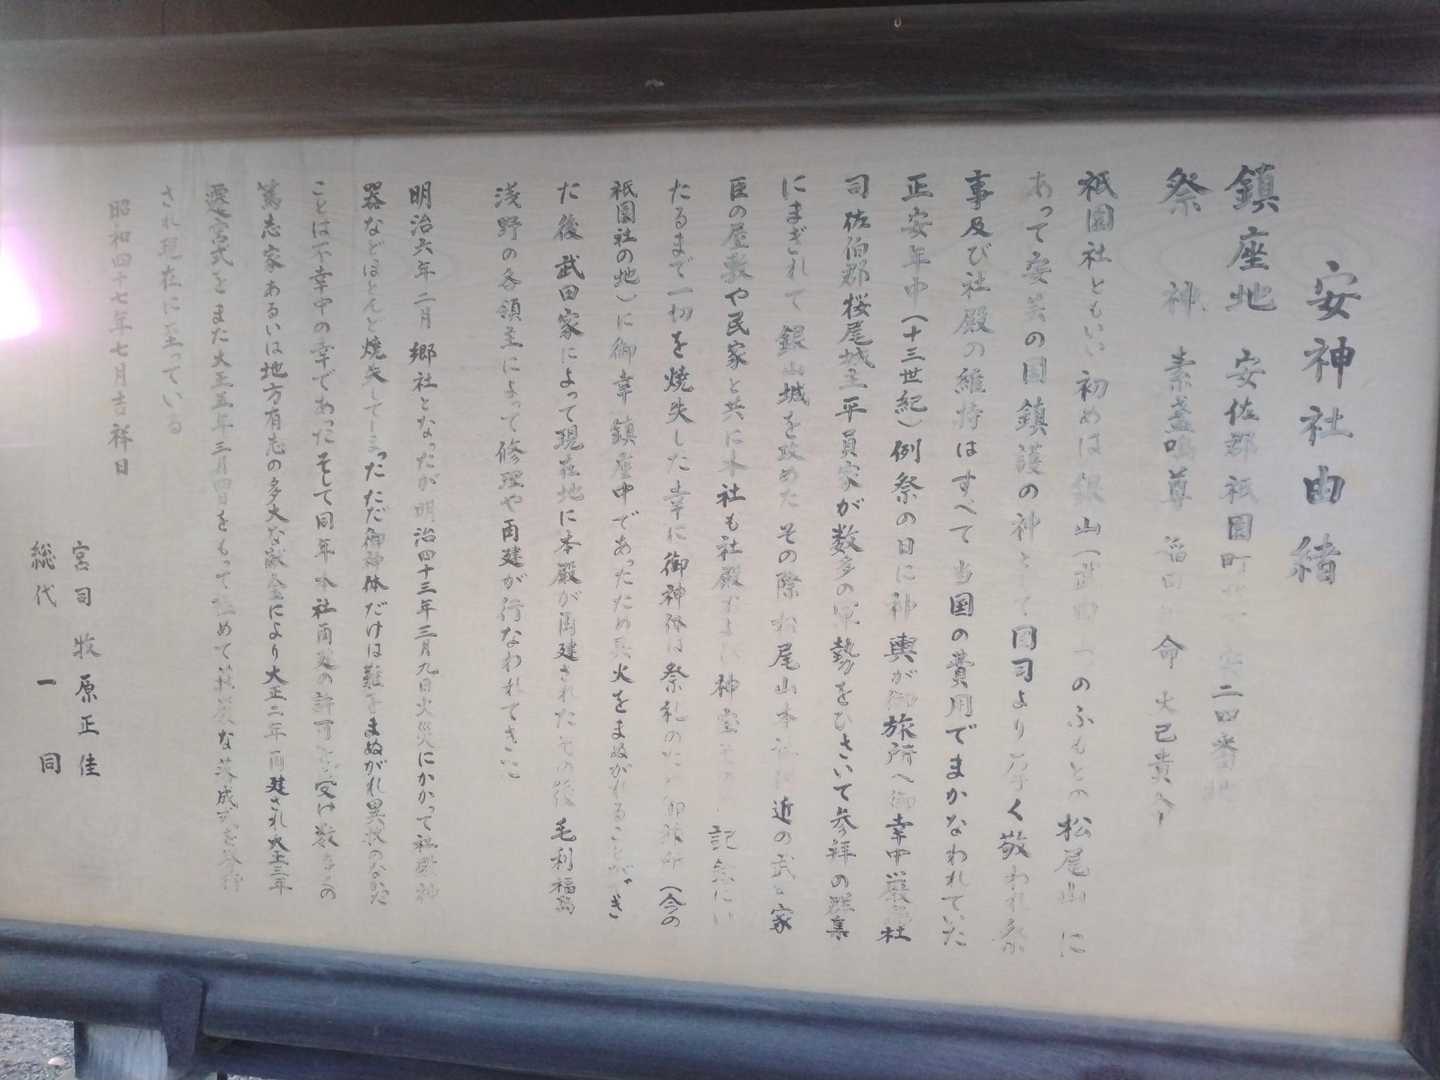 安神社由緒
鎮座地 安佐郡祇園町 二四番地
祭神 素盞嗚尊 稲田 命 大己貴命
祇園社ともいい初めは銀山(武田 のふもとの松尾山に
あって安芸の国鎮護の神として国司より厚く敬われ祭
事及び社殿の維持はすべて当国の費用でまかなわれていた
正安年中(十三世紀)例祭の日に神輿が御旅所へ御幸中厳島社
司佐伯郡桜尾城主平員家が数多の軍勢をひきいて参拝の群集
にまぎれて銀山城を攻めたその際松尾山本 近の武 家
臣の屋敷や民家と共に本社も社殿および神宝その 記念にい
たるまで一切を焼失した幸に御神体は祭礼のため御旅所(今の
祇園社の地)に御幸鎮座中であったため兵火をまぬがれることができ
た後武田家によって現在地に本殿が再建されたその後毛利福島
浅野の各領主によって修理や再建が行なわれてきた
明治六年二月郷社となったが明治四十三年三月九日火災にかかって社殿神
器などほとんど焼失してしまったただ御神体だけは難をまぬがれ異状のなかった
ことは不幸中の幸であったそして同年本社再建の許可を受け数多の
篤志家あるいは地方有志の多大な献金により大正二年再建され大正三年
遷宮式をまた大正五年三月四日をもって極めて荘厳な落成式を挙行
され現在に至っている
昭和四十七年七月吉祥日
宮司 牧原正佳
総代一同